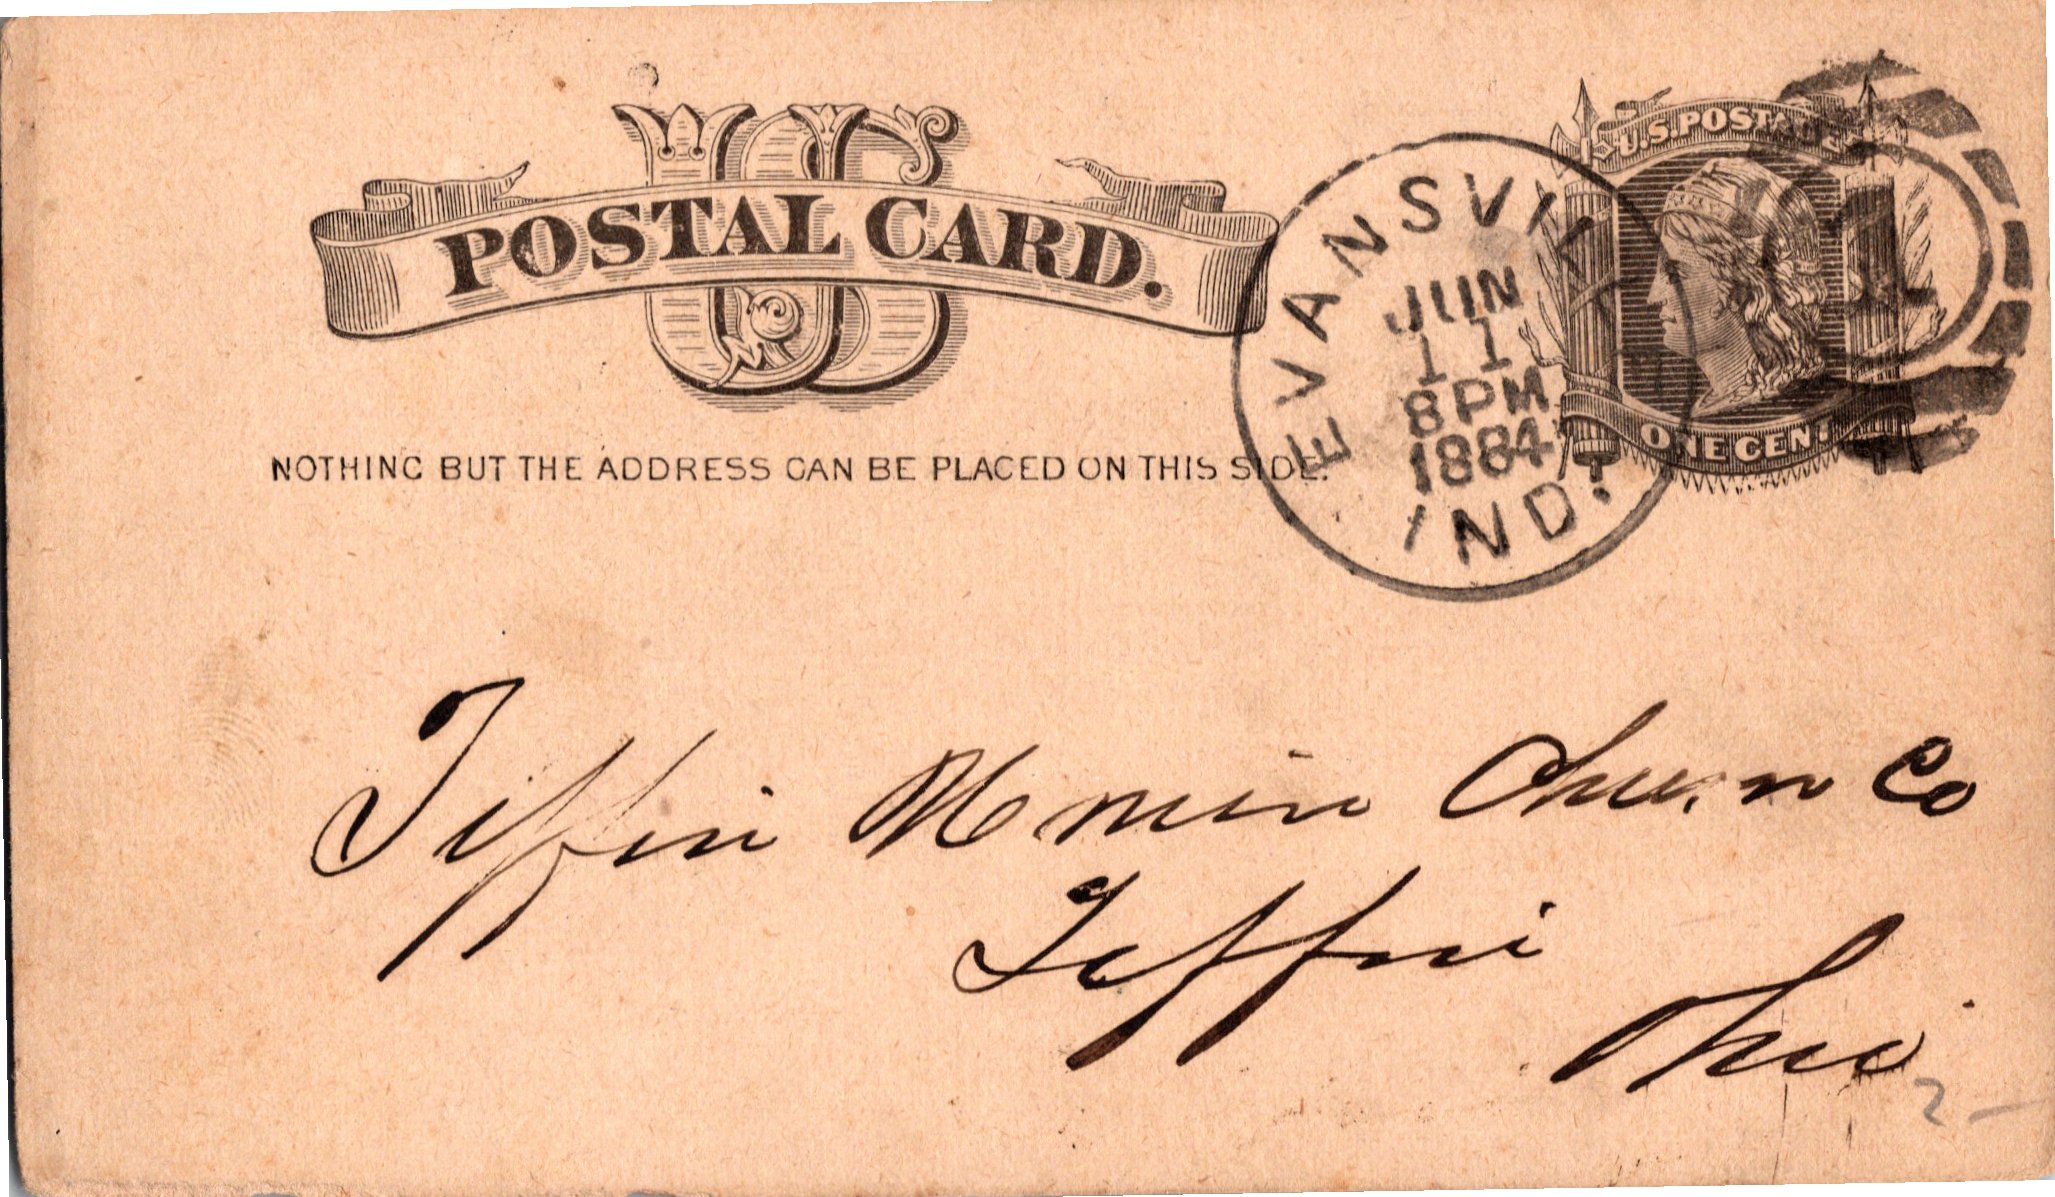 US
POSTAL CARD.
U.S. POSTAGE
ONE CENT
NOTHING BUT THE ADDRESS CAN BE PLACED ON THIS SIDE.
EVANSVILLE
JUN
11
8 PM
1884
IND.
1
Tiffin Churn Co
Tiffin
Ohio
2 —